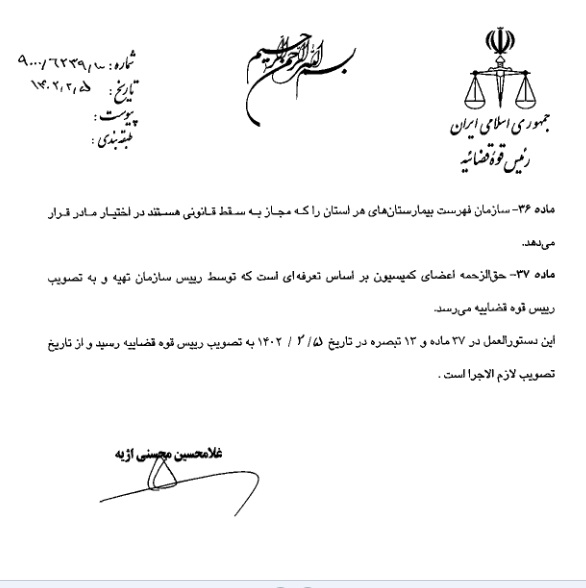 بسم الله الرحمن الرحیم
جمهوری اسلامی ایران
رئیس قوه قضائیه
شماره: ۹۰۰۰/۶۲۳۹/۱۰۰
تاریخ: ۱۴۰۲/۲/۵
پیوست:
طبقه‌بندی:
ماده ۳۶- سازمان فهرست بیمارستان‌های هر استان را که مجاز به سقط قانونی هستند در اختیار مادر قرار
می‌دهد.
ماده ۳۷- حق‌الزحمه اعضای کمیسیون بر اساس تعرفه‌ای است که توسط رییس سازمان تهیه و به تصویب
رییس قوه قضاییه می‌رسد.
این دستورالعمل در ۳۷ ماده و ۱۳ تبصره در تاریخ ۵/ ۲ / ۱۴۰۲ به تصویب رییس قوه قضاییه رسید و از تاریخ
تصویب لازم الاجرا است .
غلامحسین محسنی اژیه